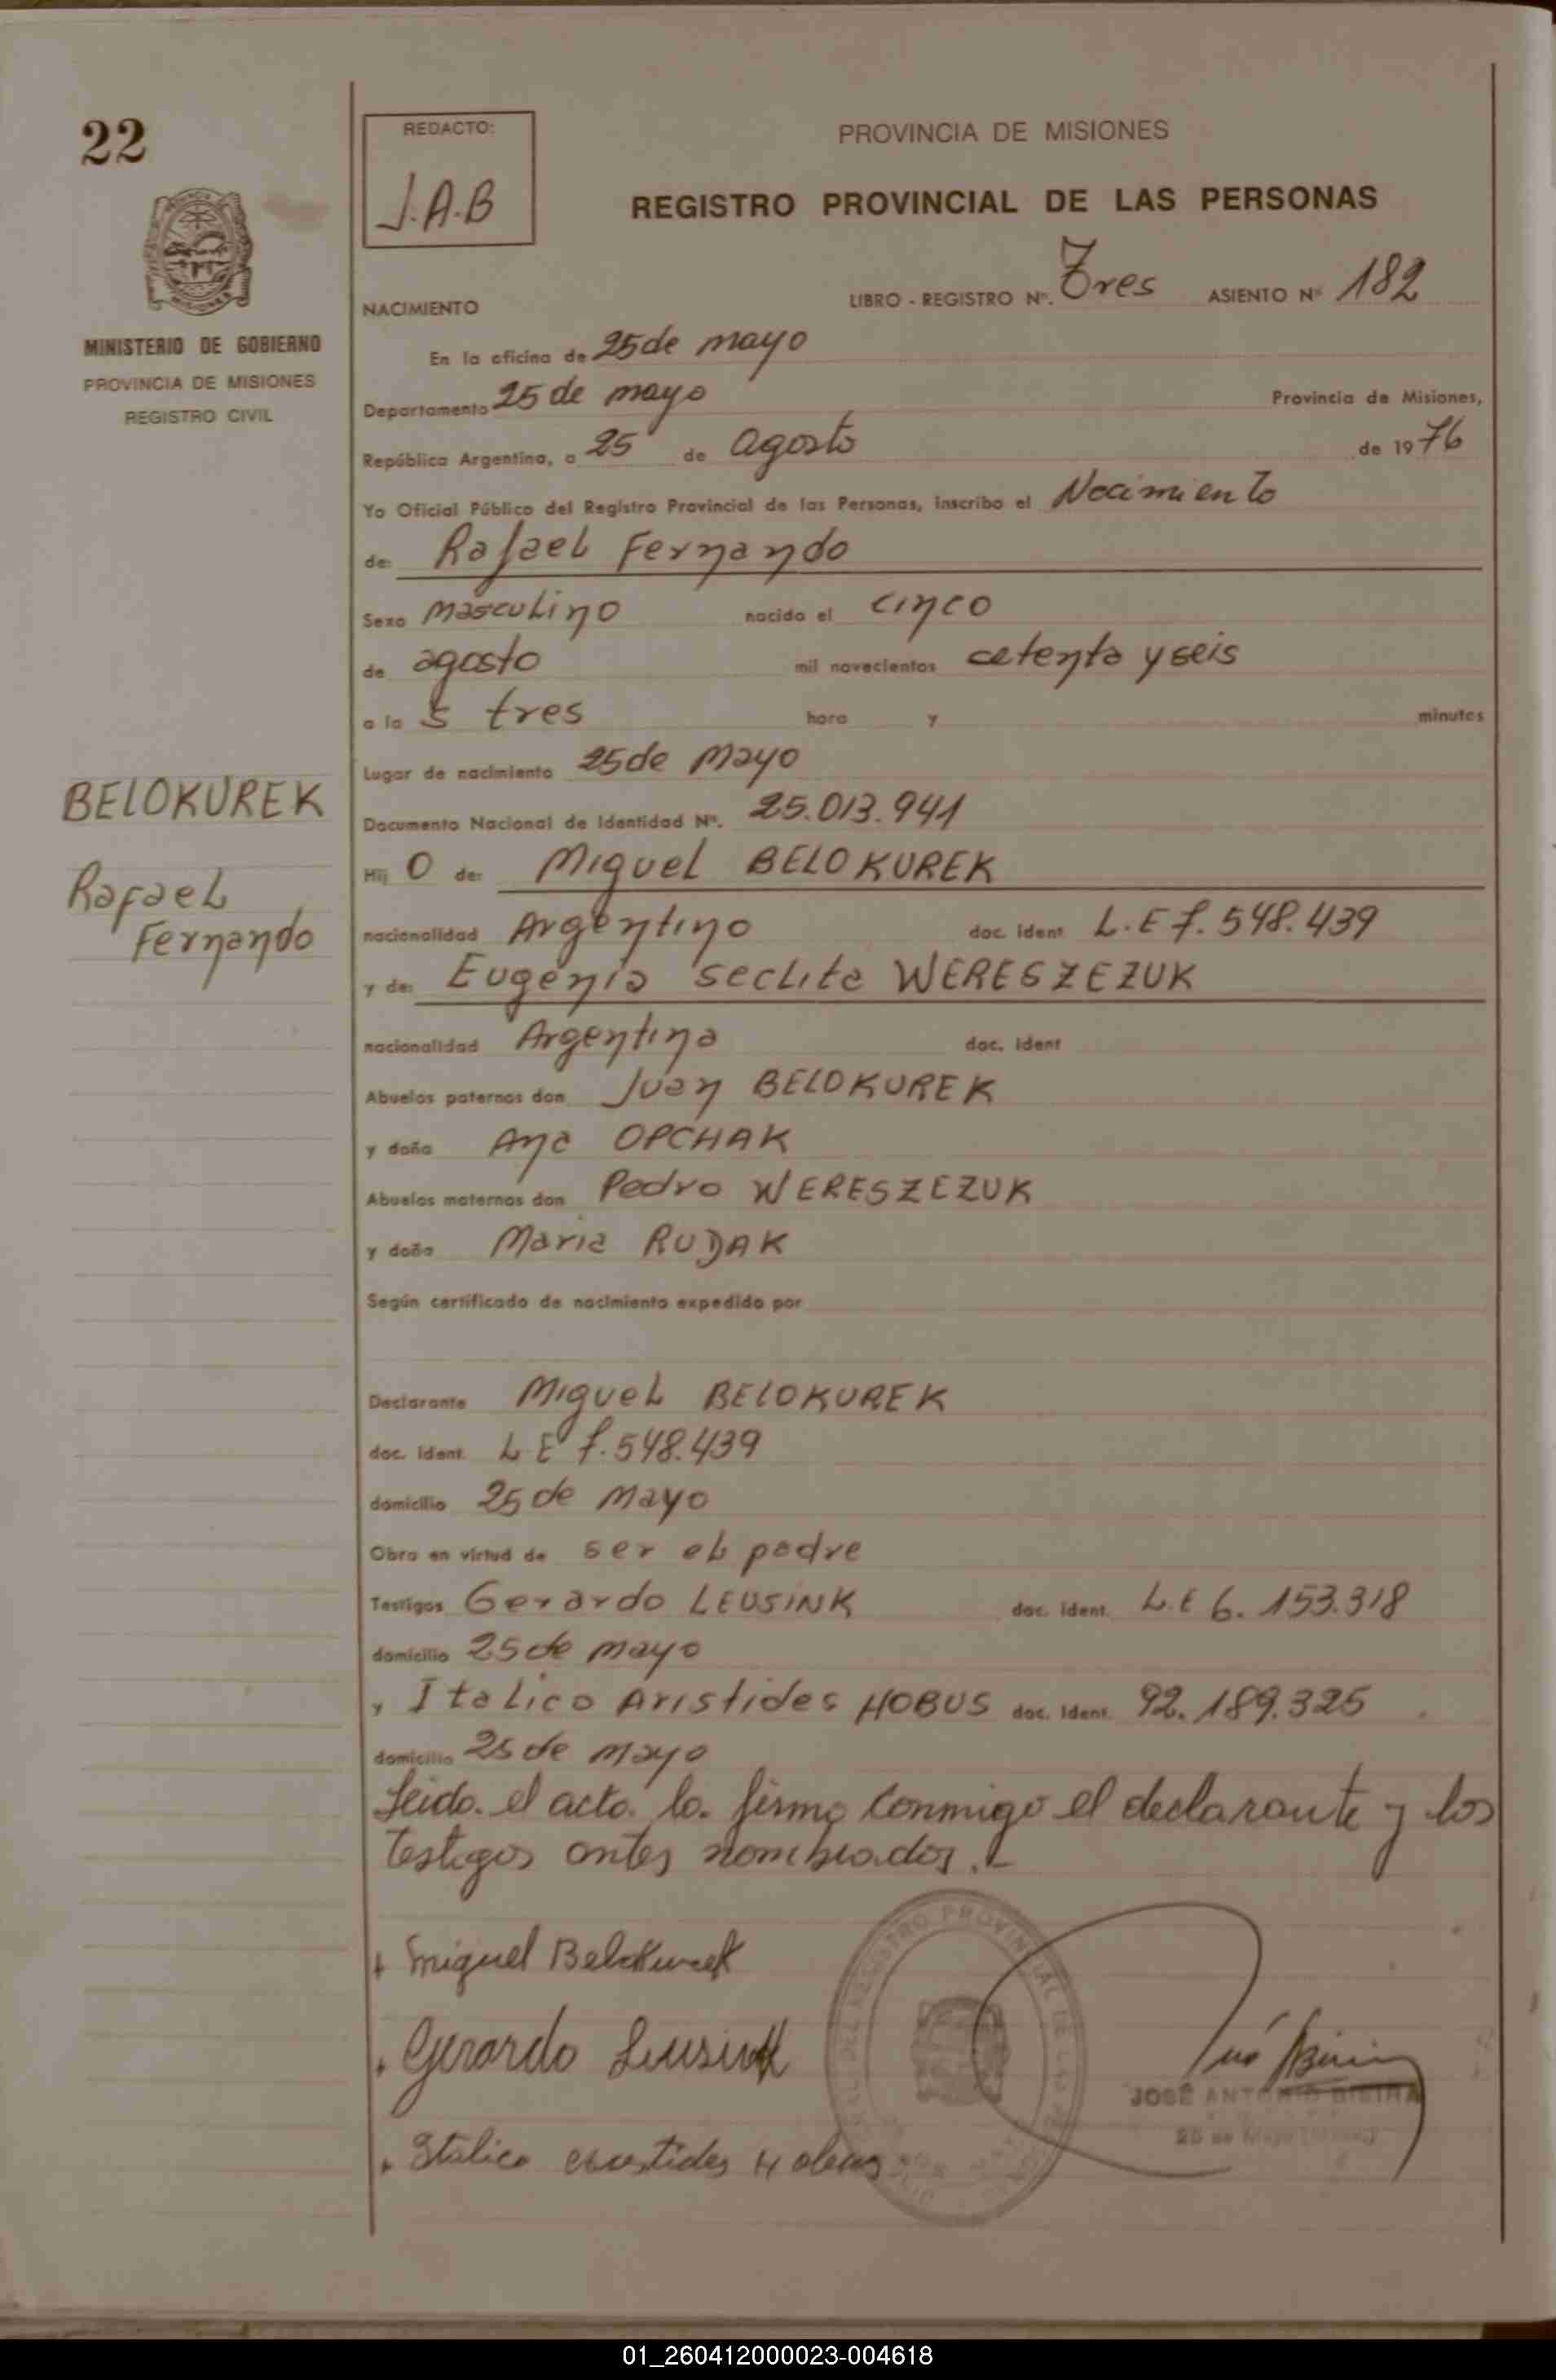 22
REDACTO:
J.A.B
PROVINCIA DE MISIONES
REGISTRO PROVINCIAL DE LAS PERSONAS
MINISTERIO DE GOBIERNO
PROVINCIA DE MISIONES
REGISTRO CIVIL
NACIMIENTO
LIBRO - REGISTRO Nº. Tres ASIENTO Nº 182
En la oficina de 25 de mayo
Departamento 25 de mayo Provincia de Misiones,
República Argentina, a 25 de agosto de 1976
Yo Oficial Público del Registro Provincial de las Personas, inscribo el Nacimiento
de: Rafael Fernando
Sexo masculino nacido el cinco
de agosto mil novecientos cetenta y seis
a la s tres hora y minutos
Lugar de nacimiento 25 de Mayo
Documento Nacional de Identidad Nº. 25.013.941
BELOKUREK
Rafael
Fernando
Hij o de: Miguel BELOKUREK
nacionalidad Argentino doc. ident L.E 7.548.439
y de: Eugenia seclita WERESZEZUK
nacionalidad Argentina doc. ident
Abuelos paternos don Juan BELOKUREK
y doña Ana OPCHAK
Abuelos maternos don Pedro WERESZEZUK
y doña Maria RUDAK
Según certificado de nacimiento expedido por
Declarante Miguel BELOKUREK
doc. ident. L E 7.548.439
domicilio 25 de Mayo
Obra en virtud de ser el padre
Testigos Gerardo LEUSINK doc. ident. L.E 6.153.318
domicilio 25 de mayo
y Italico Aristides HOBUS doc. ident. 92.189.325
domicilio 25 de mayo
Leido el acto lo firma conmigo el declarante y los
testigos antes nombrados.
Miguel Belokurek
Gerardo Leusink
Italico
JOSÉ ANTONIO
25 de Mayo
01_260412000023-004618